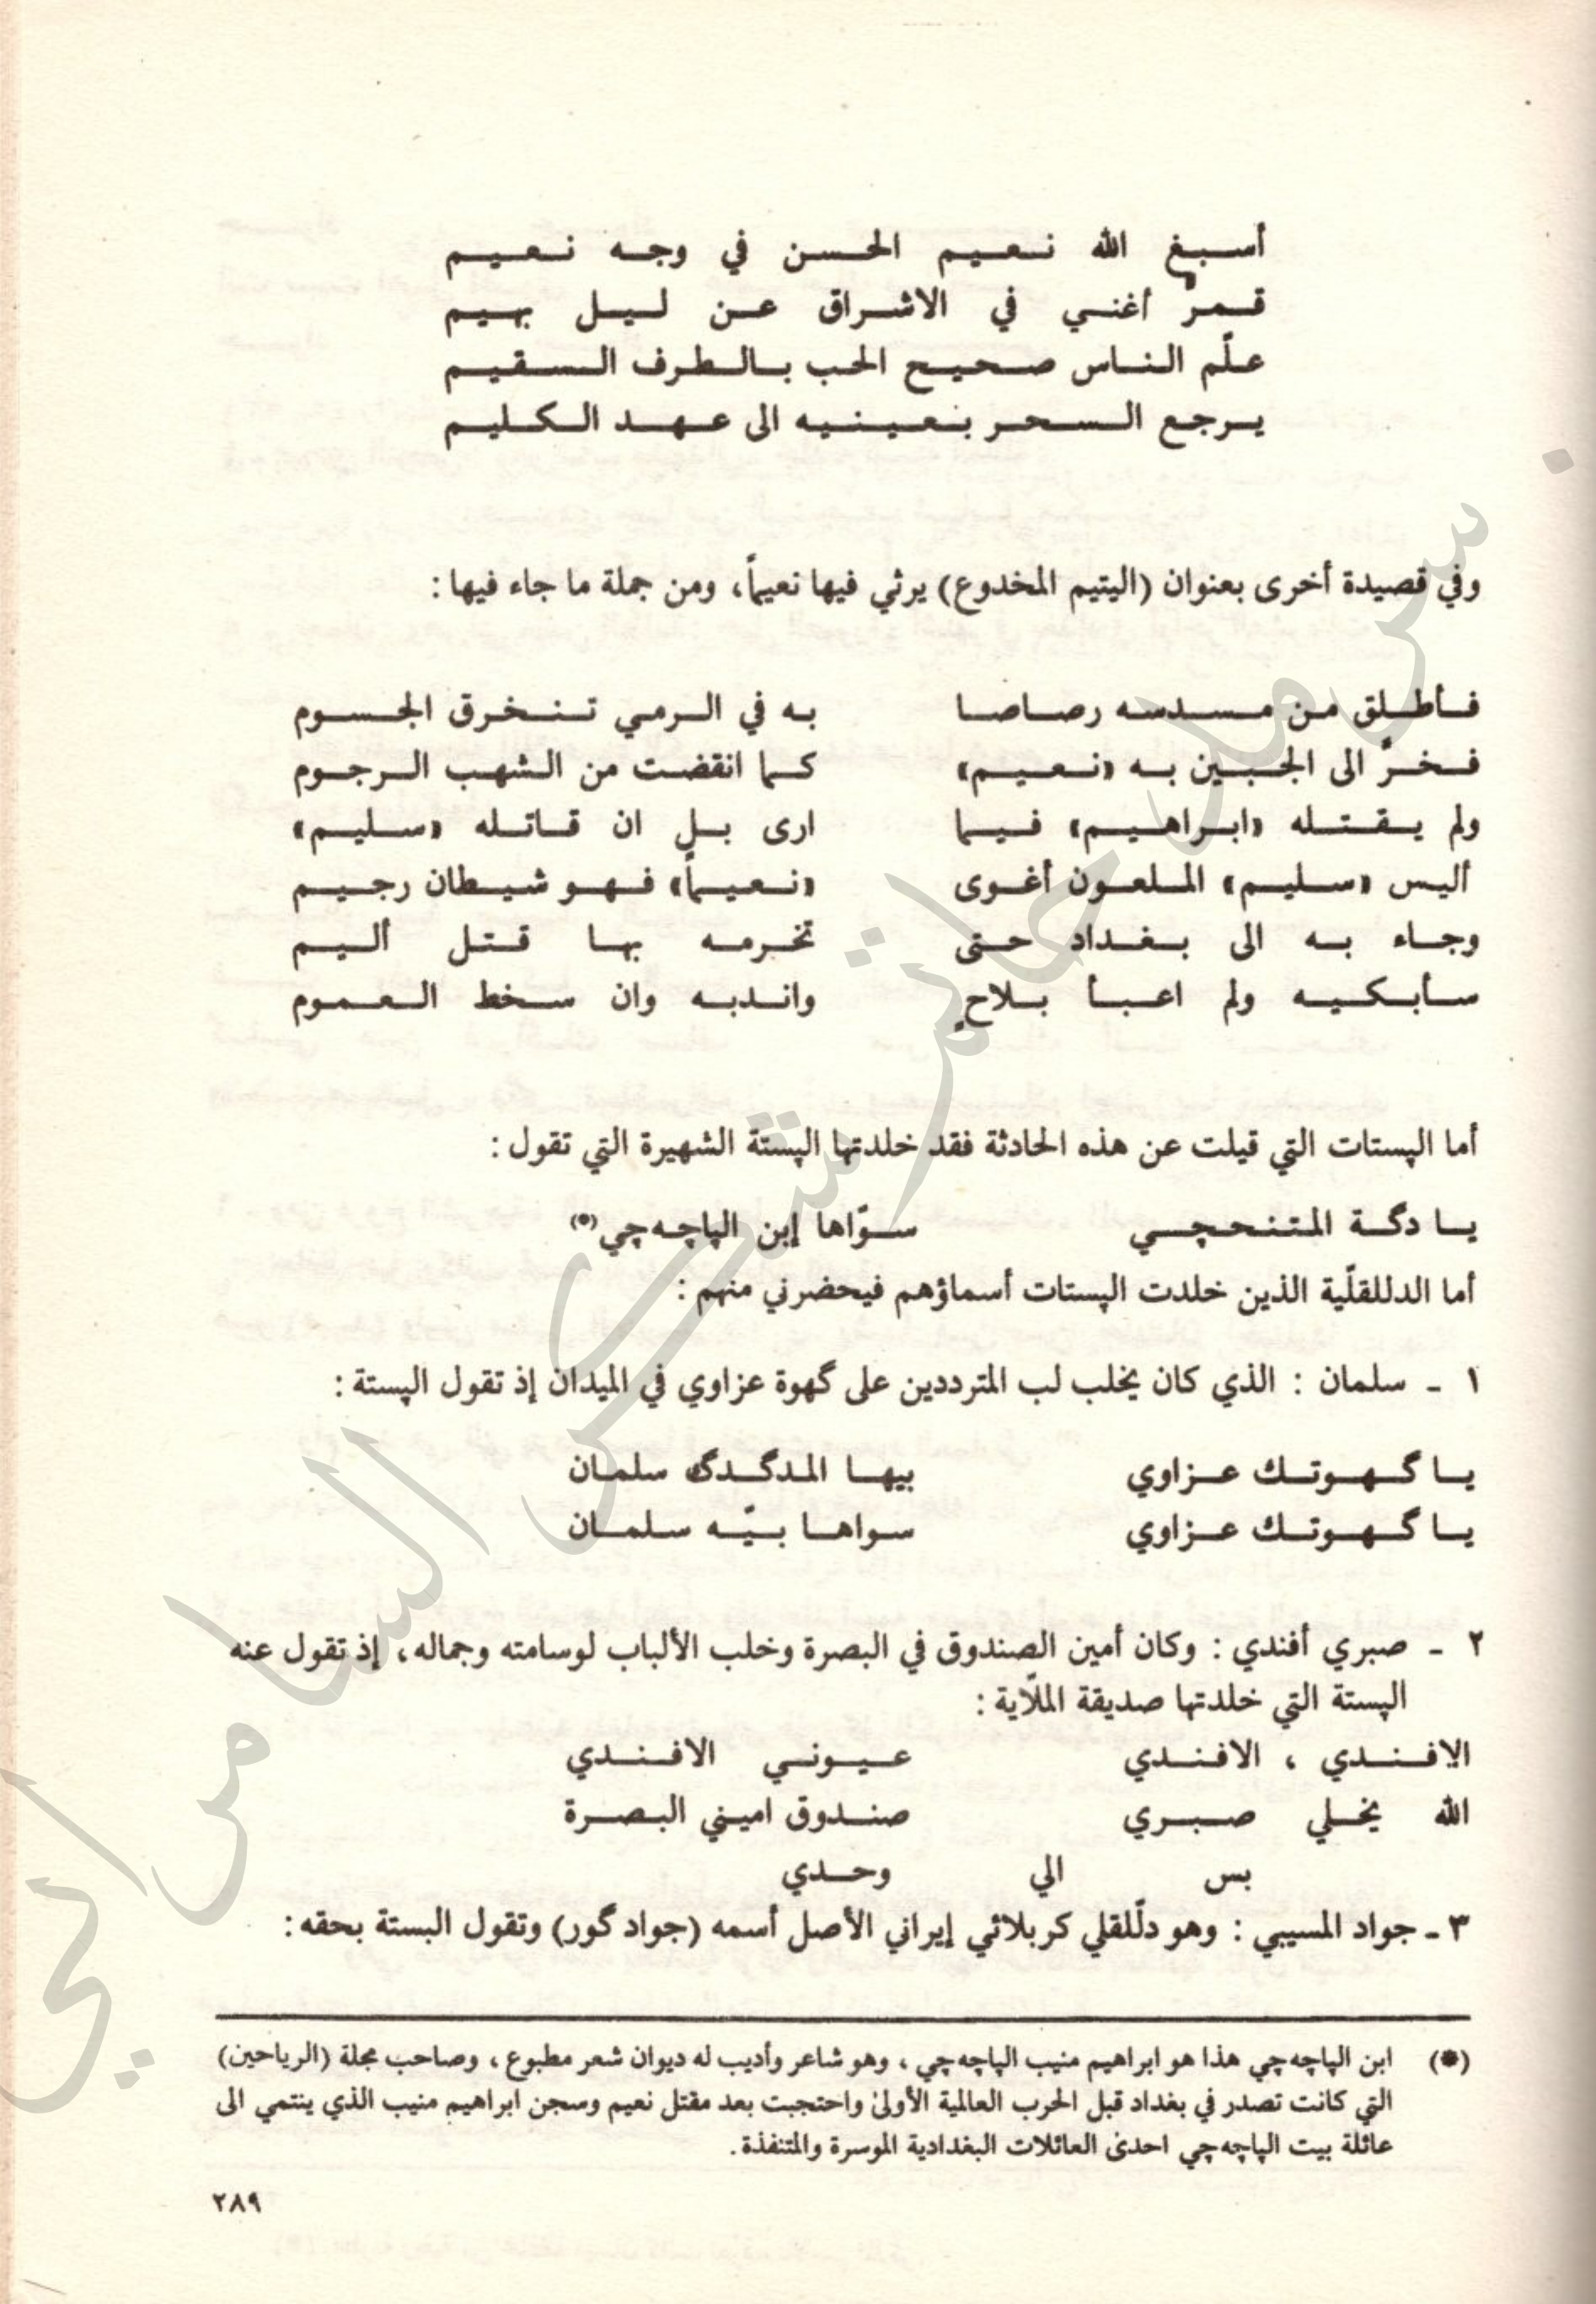 أسبغ الله نعيم الحسن في وجه نعيم
قمرٌ أغنى في الاشراق عن ليل بهيم
علّم الناس صحيح الحب بالطرف السقيم
يرجع السحر بعينيه الى عهد الكليم
وفي قصيدة أخرى بعنوان (اليتيم المخدوع) يرثي فيها نعيماً، ومن جملة ما جاء فيها :
فأطلق من مسدسه رصاصا به في الرمي تنخرق الجسوم
فخرَّ الى الجبين به «نعيم» كما انقضت من الشهب الرجوم
ولم يقتله «ابراهيم» فيما ارى بل ان قاتله «سليم»
أليس «سليم» الملعون أغوى «نعيماً» فهو شيطان رجيم
وجاء به الى بغداد حتى تخرمه بها قتل أليم
سأبكيه ولم اعبأ بلاحٍ واندبه وان سخط العموم
أما الپستات التي قيلت عن هذه الحادثة فقد خلدتها الپستة الشهيرة التي تقول :
يا دگة المتنحچي سوّاها إبن الپاچه‌چي(*)
أما الدللقلّية الذين خلدت الپستات أسماؤهم فيحضرني منهم :
١ - سلمان : الذي كان يخلب لب المترددين على گهوة عزاوي في الميدان إذ تقول الپستة :
يا گهوتك عزاوي بيها المدگدگ سلمان
يا گهوتك عزاوي سواها بيّه سلمان
٢ - صبري أفندي : وكان أمين الصندوق في البصرة وخلب الألباب لوسامته وجماله، إذ تقول عنه
الپستة التي خلدتها صديقة الملّاية :
الافندي ، الافندي عيوني الافندي
الله يخلي صبري صندوق اميني البصرة
بس الي وحدي
٣ - جواد المسيبي : وهو دلّلقلي كربلائي إيراني الأصل أسمه (جواد گور) وتقول البستة بحقه :
(*) ابن الپاچه‌چي هذا هو ابراهيم منيب الپاچه‌چي ، وهو شاعر وأديب له ديوان شعر مطبوع ، وصاحب مجلة (الرياحين)
التي كانت تصدر في بغداد قبل الحرب العالمية الأولىٰ واحتجبت بعد مقتل نعيم وسجن ابراهيم منيب الذي ينتمي الى
عائلة بيت الپاچه‌چي احدىٰ العائلات البغدادية الموسرة والمتنفذة .
٢٨٩